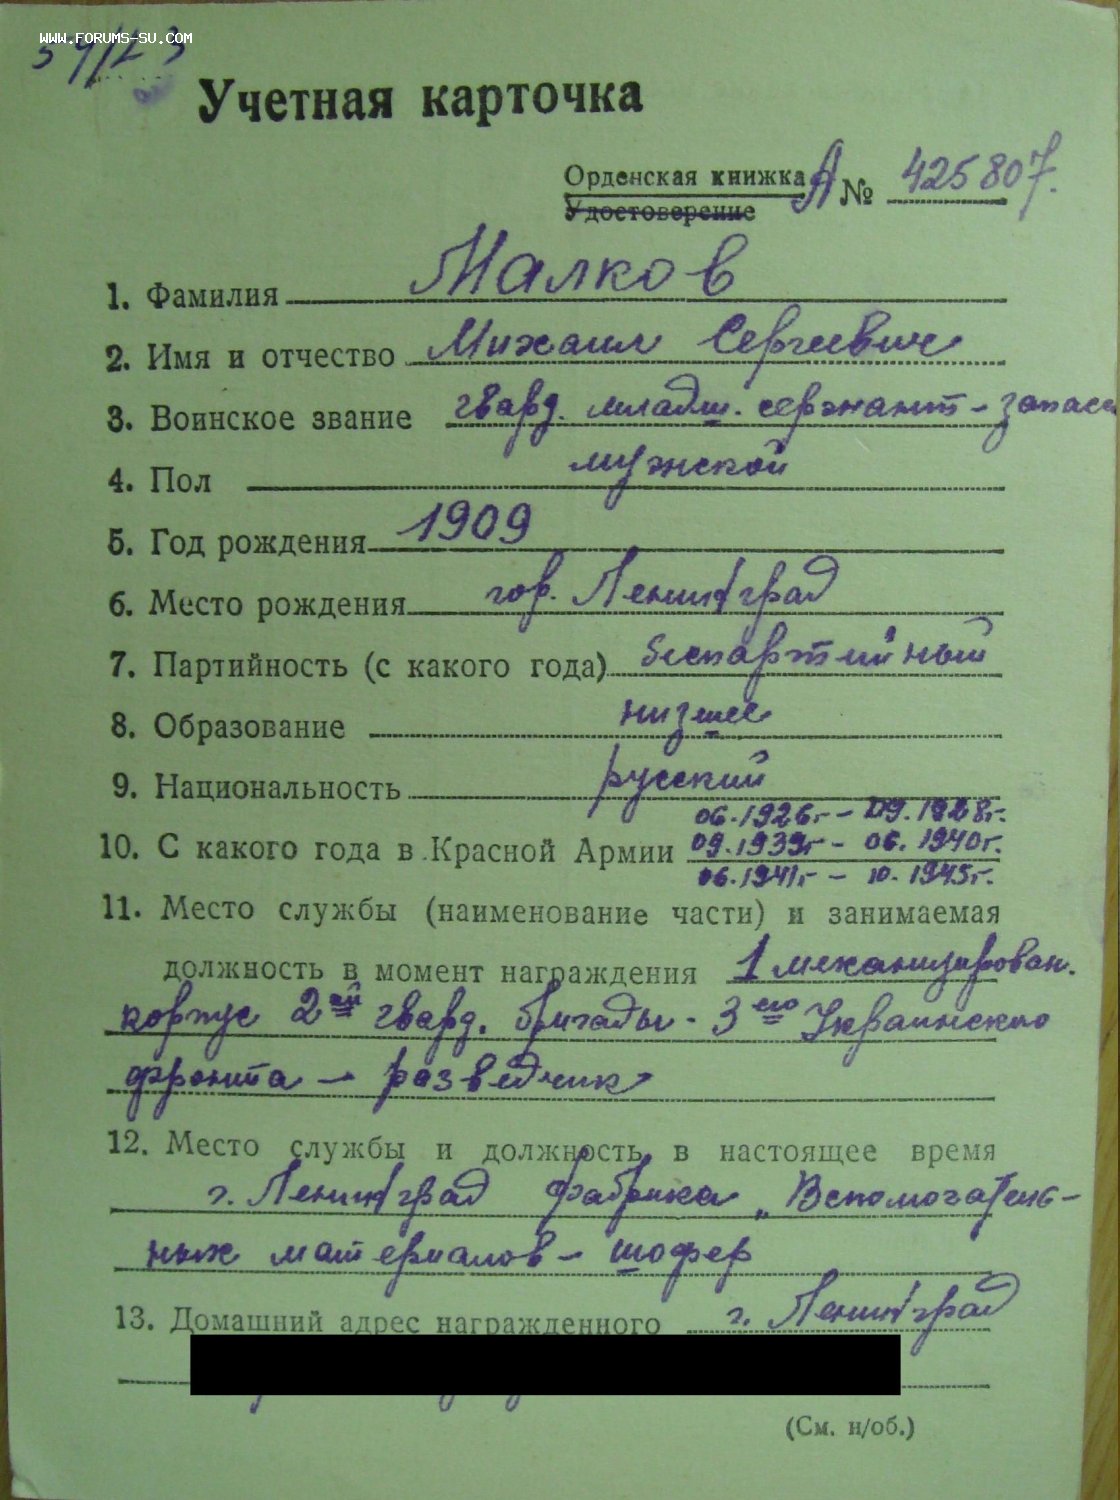 www.forums-su.com
Учетная карточка
Орденская книжка А № 425807.
Удостоверение
1. Фамилия Малков
2. Имя и отчество Михаил Сергеевич
3. Воинское звание гвард. младш. сержант - запаса
4. Пол мужской
5. Год рождения 1909
6. Место рождения гор. Ленинград
7. Партийность (с какого года) беспартийный
8. Образование низшее
9. Национальность русский
06.1926г - 09.1928г.
10. С какого года в Красной Армии 09.1939г - 06.1940г.
06.1941г - 10.1945г.
11. Место службы (наименование части) и занимаемая
должность в момент награждения 1 механизирован.
корпус 2ой гвард. бригады - 3его Украинского
фронта - разведчик
12. Место службы и должность в настоящее время
г. Ленинград фабрика „Вспомогатель-
ных материалов - шофер
13. Домашний адрес награжденного г. Ленинград
(См. н/об.)